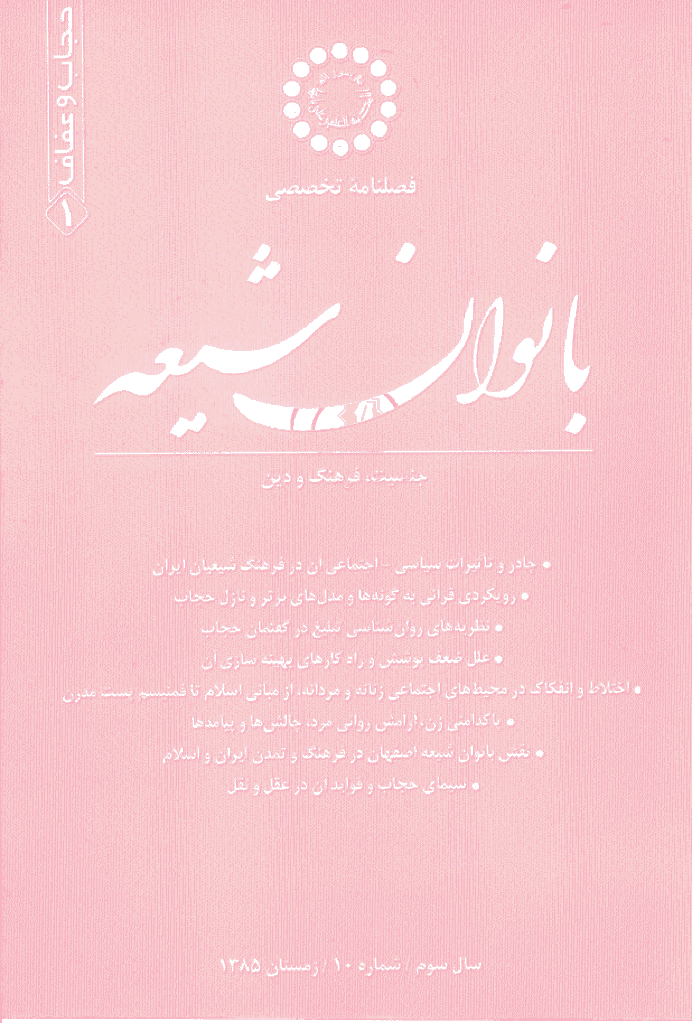 حجاب و عفاف
۱
فصلنامهٔ تخصصی
بانوان شیعه
جنسیت، فرهنگ و دین
• چادر و تأثیرات سیاسی - اجتماعی آن در فرهنگ شیعیان ایران
• رویکردی قرآنی به گونه‌ها و مدل‌های برتر و نازل حجاب
• نظریه‌های روان‌شناسی تبلیغ در گفتمان حجاب
• علل ضعف پوشش و راه کارهای بهینه سازی آن
• اختلاط و انفکاک در محیط‌های اجتماعی زنانه و مردانه، از مبانی اسلام تا فمنیسم پست مدرن
• پاکدامنی زن، آرامش روانی مرد، چالش‌ها و پیامدها
• نقش بانوان شیعه اصفهان در فرهنگ و تمدن ایران و اسلام
• سیمای حجاب و فواید آن در عقل و نقل
سال سوم / شماره ۱۰ / زمستان ۱۳۸۵